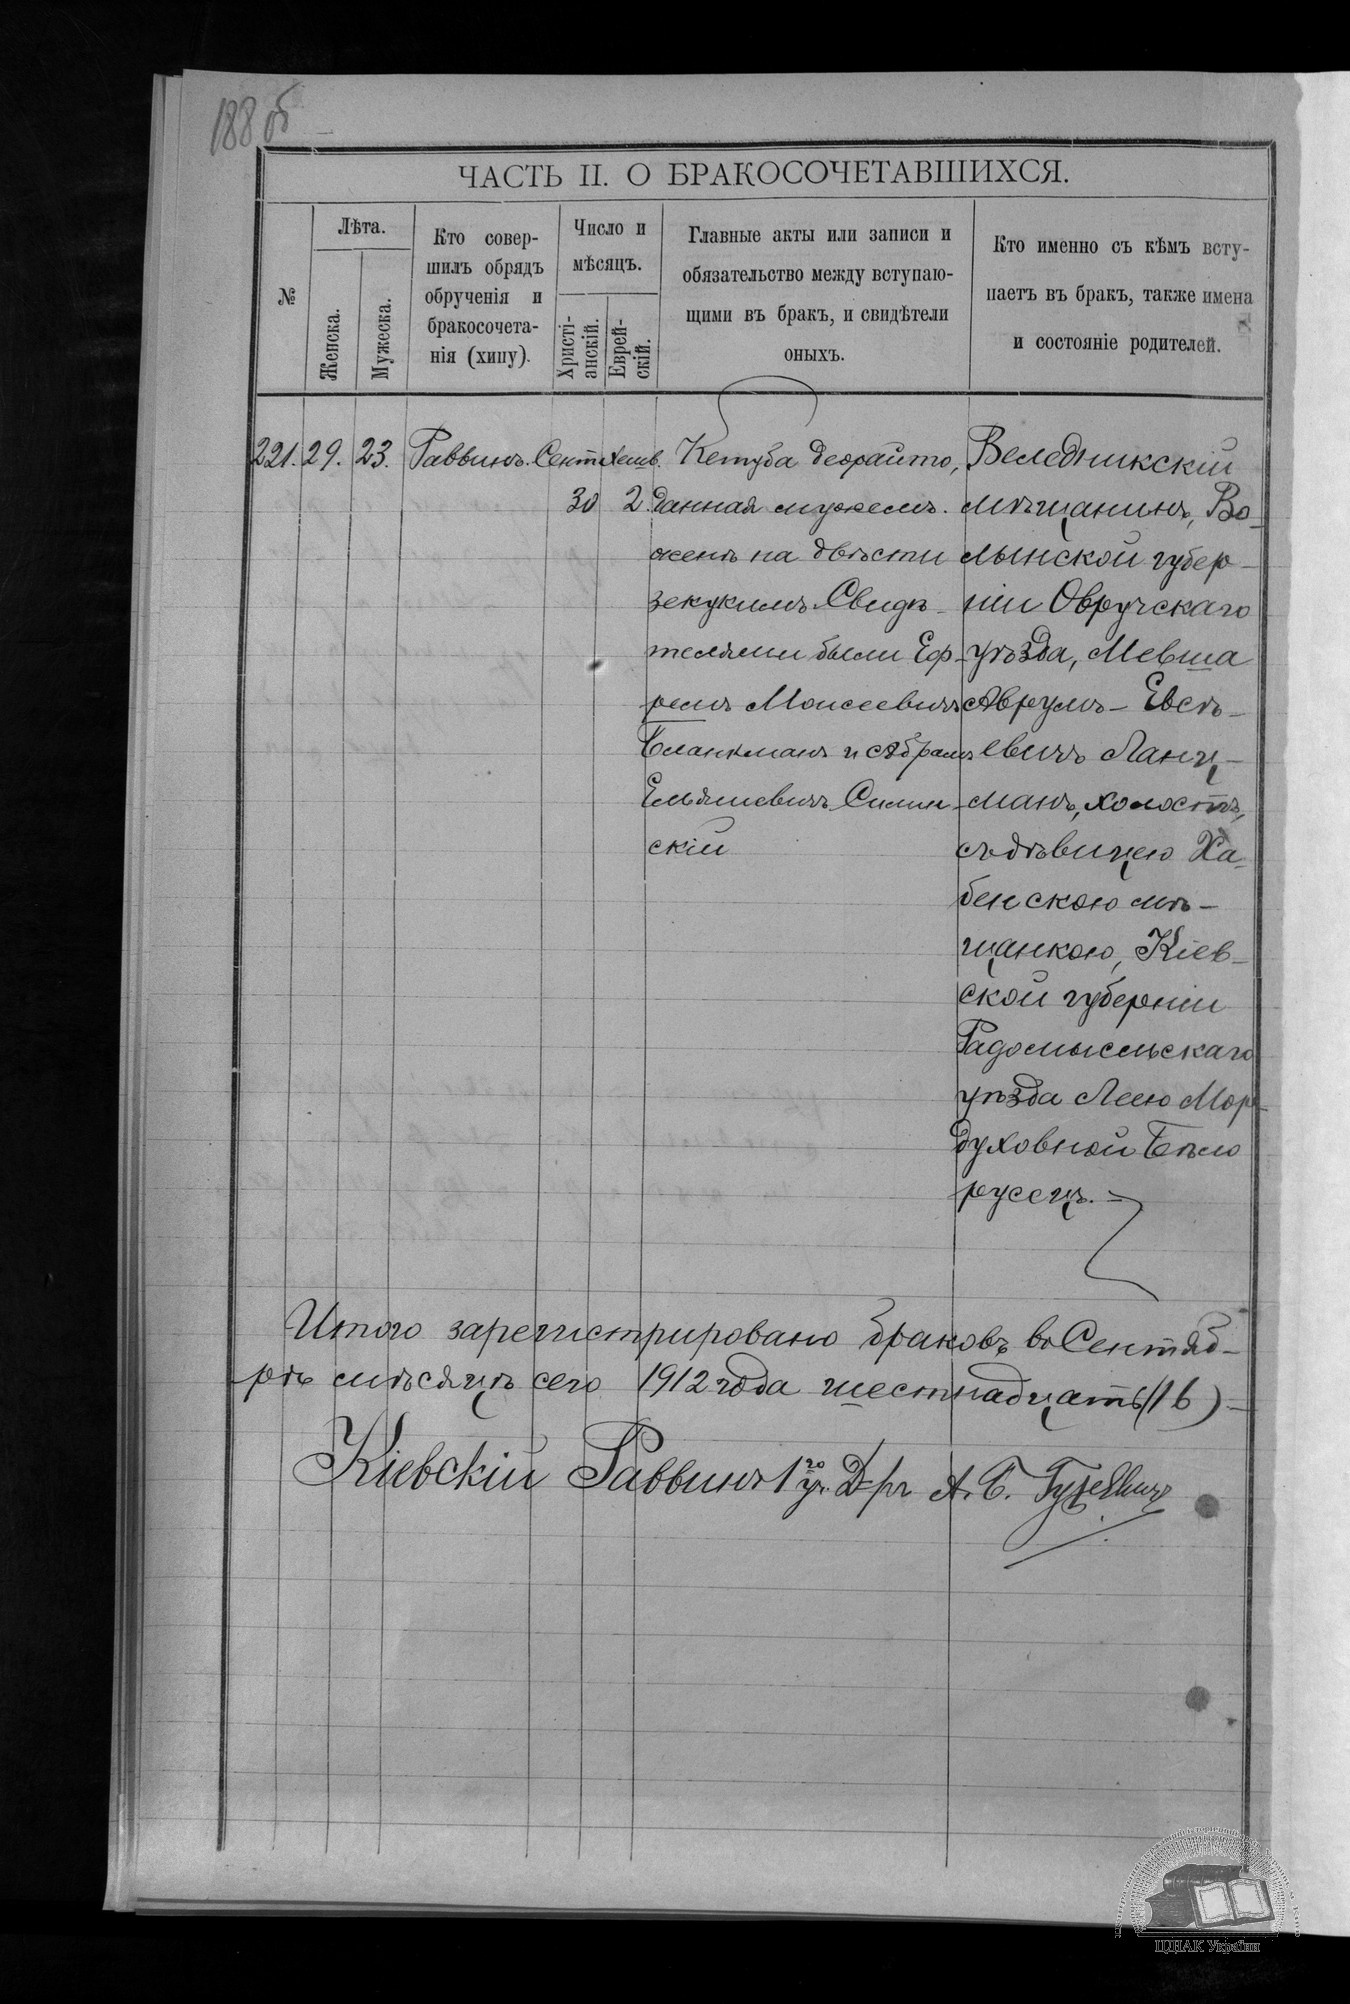 188 об
ЧАСТЬ II. О БРАКОСОЧЕТАВШИХСЯ.
№
Лѣта.
Женска.
Мужеска.
Кто совер-
шилъ обрядъ
обрученія и
бракосочета-
нія (хипу).
Число и
мѣсяцъ.
Христі-
анскій.
Еврей-
скій.
Главные акты или записи и
обязательство между вступаю-
щими въ бракъ, и свидѣтели
оныхъ.
Кто именно съ кѣмъ всту-
паетъ въ бракъ, также имена
и состояніе родителей.
221.
29.
23.
Раввинъ.
Сент.
30
Хешв.
2.
Кетуба деорайто,
данная мужемъ
женѣ на двѣсти
зекукимъ. Свидѣ-
телями были Еф-
ремъ Моисеевичъ
Бланкманъ и Абрамъ
Ельяшевичъ
скій
Веледникскій
мѣщанинъ, Во-
лынской губер-
ніи Овручскаго
уѣзда, Мевша
Аврумъ-Евсѣ-
евичъ Ланц-
манъ, холостъ,
съ дѣвицею Ха-
бенскою мѣ-
щанкою, Кіев-
ской губерніи
Радомысльскаго
уѣзда Леею Мор-
духовной Бѣло
русецъ.
Итого зарегистрировано браковъ въ Сентяб-
рѣ мѣсяцѣ сего 1912 года шестнадцать (16)
Кіевскій Раввинъ 1го уч. Д-ръ А. Б. Гуревичъ
ЦДІАК України